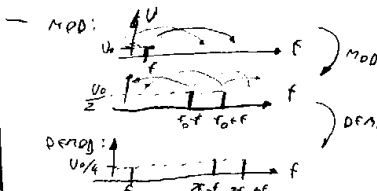 — MOD: U
U₀ f F
MOD
U₀/2 f₀-f f₀+f f
DEM
DEMOD:
U₀/4 f 2f₀-f 2f₀+f f